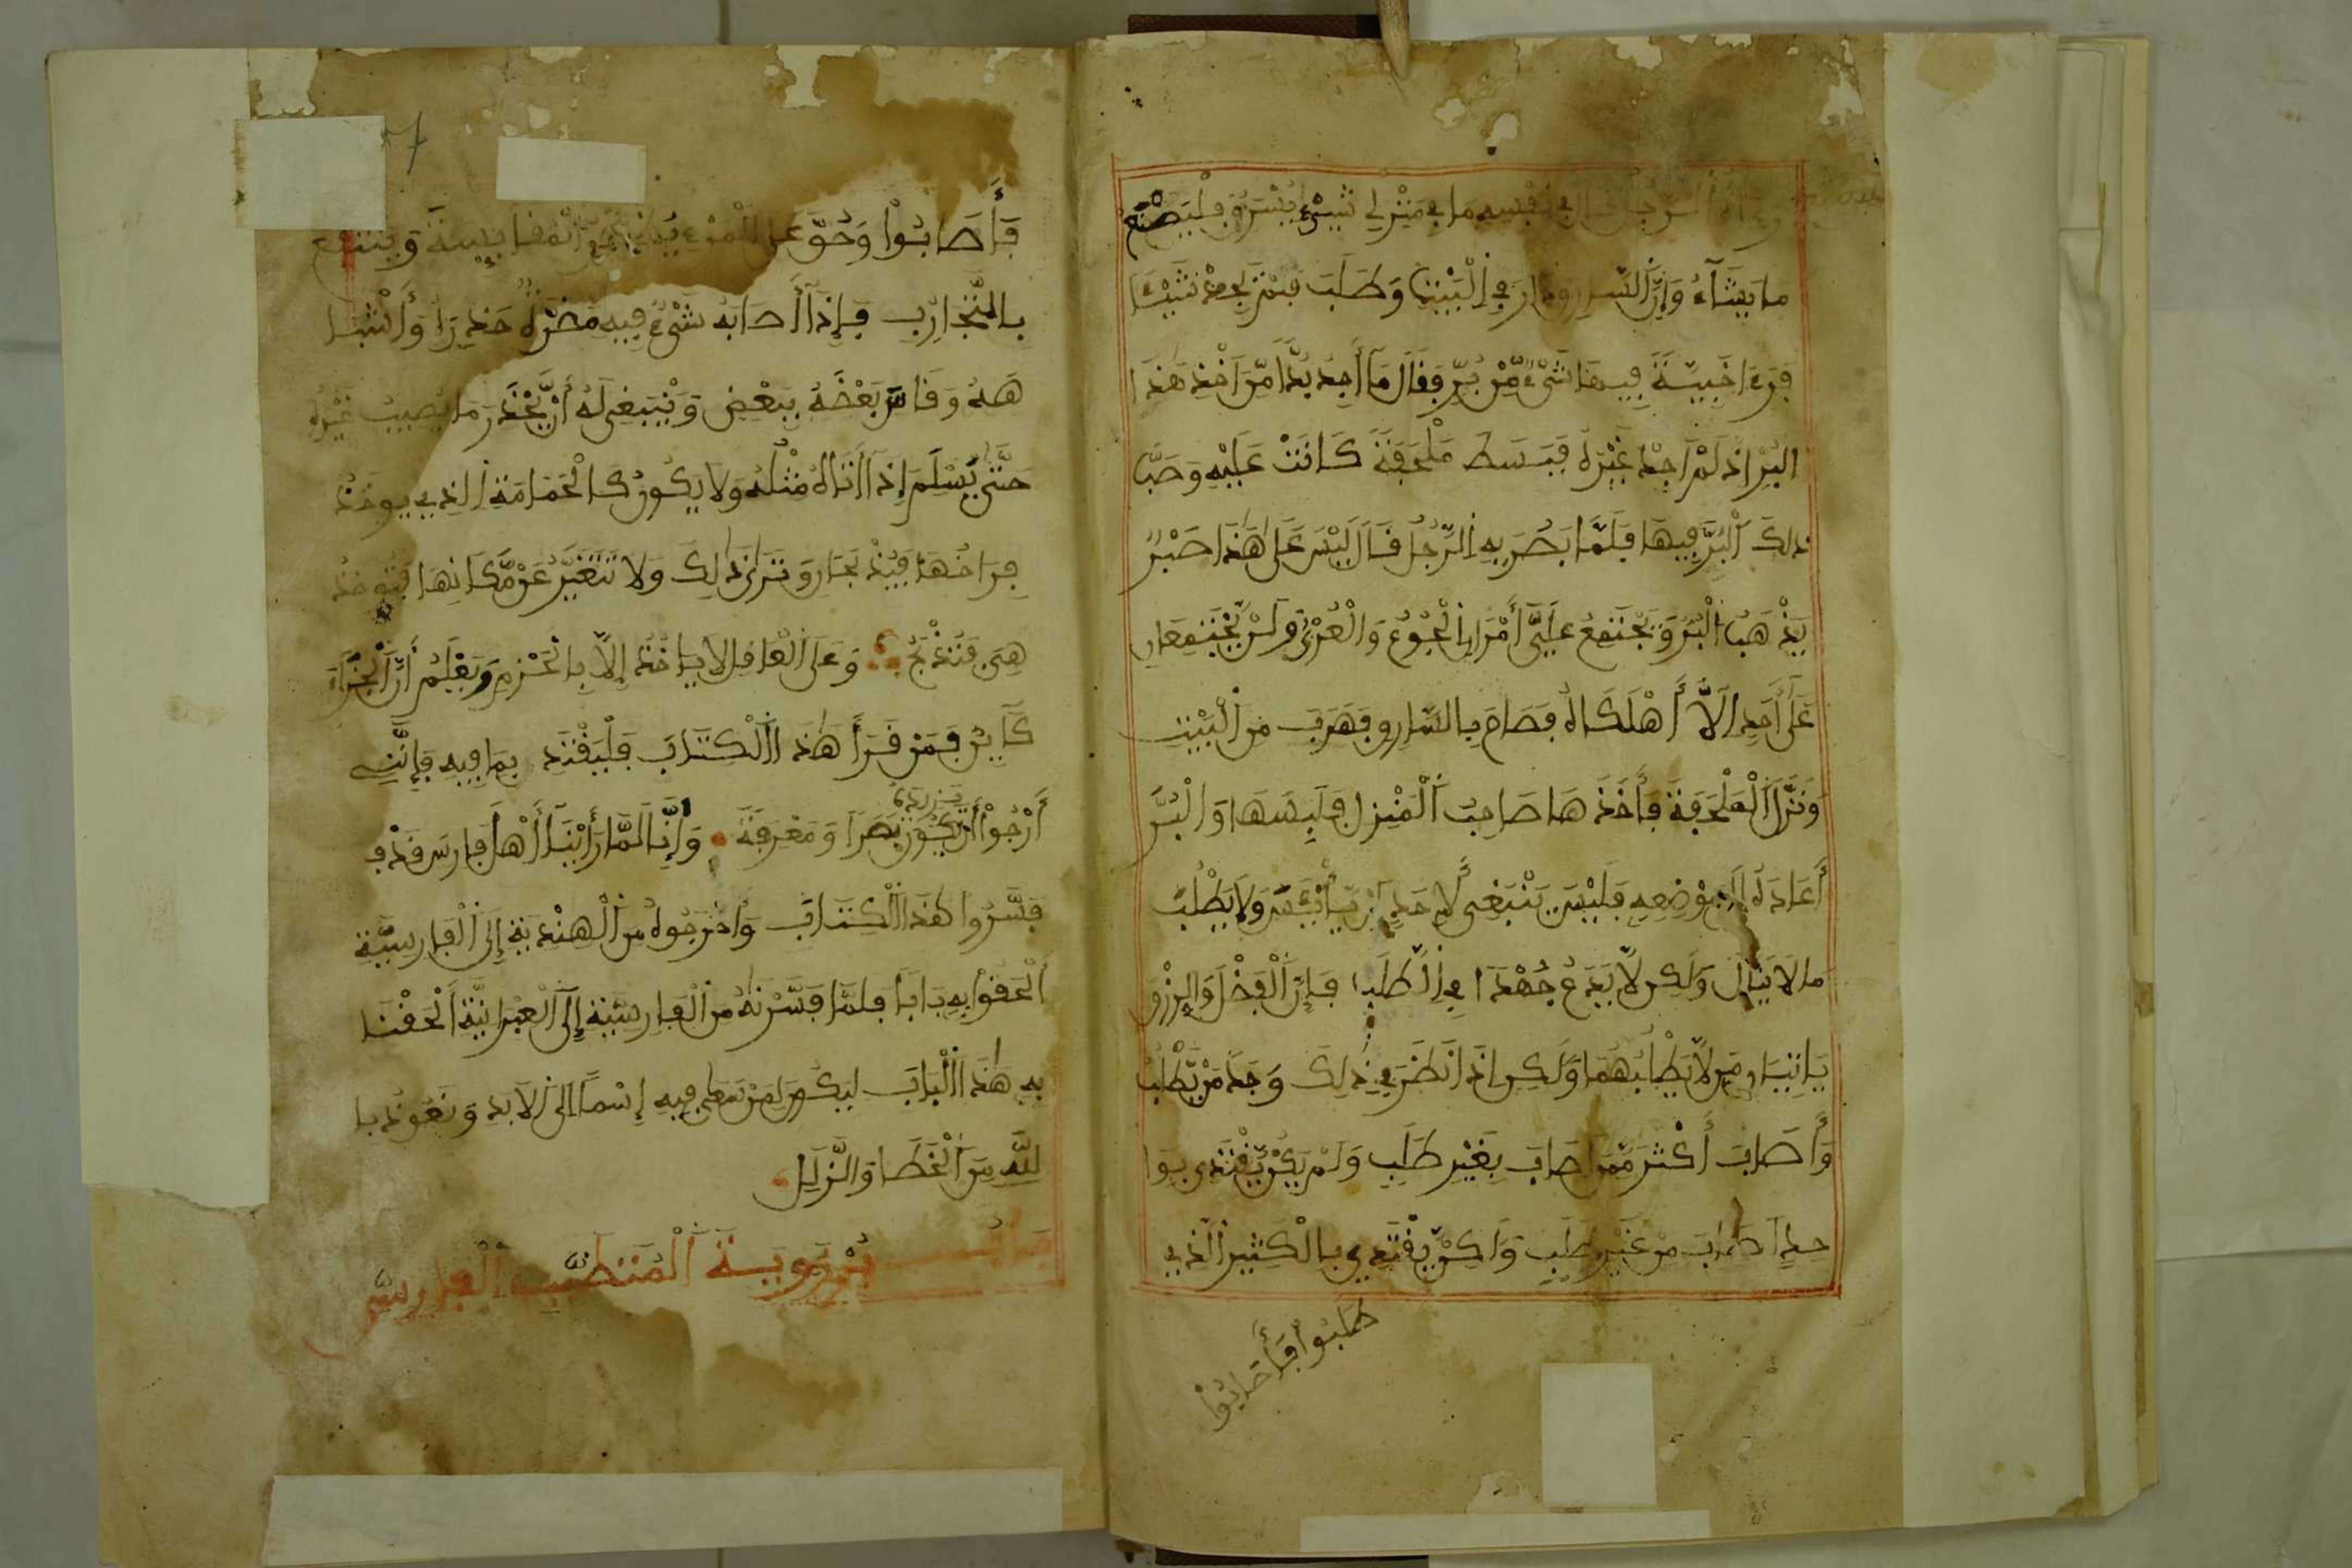 الرجل قال في نفسه ما في منزلي شيء يسرق فليصنع
ما يشآء وإنّ السارق دار في البيت وطلب فلم يجد شيئا
فرءا خبيّة فيها شيء مّن برّ وقال مآ أجد بدّا من اخذ هذا
البرّ اذ لم اجد غيره فبسط ملحفة كانت عليه وصبّ
ذلك البرّ فيها فلمّا بصر به الرّجل قال ليس على هذا صبر
يذهب البرّ ويجتمع عليّ أمران الجوع والعري ولن يجتمعان
على أحد الّا أهلكاه فصاح بالسّارق فهرب من البيت
وترك الملحفة فأخذها صاحب المنزل فلبسها والبرّ
أعاده إلى موضعه فليس ينبغي لأحد أن ييأس ولا يطلب
ما لا ينال ولكن لّا يدع جهدا في الطلب فإنّ الفضل والرزق
ياتيان من لّا يطلبهما ولكن اذا نظر في ذلك وجد من يّطلب
وأصاب أكثر ممن اصاب بغير طلب ولم يكن يّقتدى بوا
حد اصاب من غير طلب ولكن يّقتدي بالكثير الذي
طلبوا فأصابوا
فأصابوا وحقّ على المرء ان يكثر المقايسة وينتفع
بالتّجارب فإذآ أصابه شيء فيه مضرّة حذره وأشبا
هه وقاس بعضه ببعض وينبغي له أن يّحذر ما يصيب غيره
حتّى يسلم إذآ اتاه مثله ولا يكون كالحمامة الذي يوخذ
فراخها فيذبحان وترى ذلك ولا تتغيّر عن مّكانها فتوخذ
هي فتذبح وعلى العاقل لا ياخذ إلّا بالحزم ويعلم أنّ الجزآء
كآين فمن قرأ هذا الكتاب فليقتد بما فيه فإنّي
أرجوا أن يكون بصرا ومعرفة وإنّا لمّا رأينآ أهل فارس قد
فسّروا هذا الكتاب وأخرجوه من الهندية إلى الفارسيّة
ألحقوا به بابا فلمّا فسّرناه من الفارسيّة إلى العبرانيّة ألحقنا
به هذا الباب ليكون لمن سعى فيه إسما الى الابد ونعوذ با
للّه من الخطا والزّلل
باب برزويه المتطبّب الفارسيّ